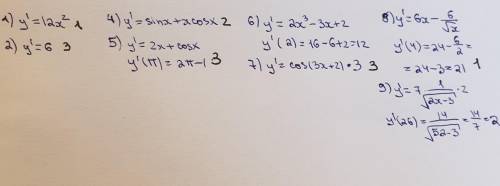 1) y' = 12x² 1
2) y' = 6 3
4) y' = sinx + xcosx 2
5) y' = 2x + cosx
y'(π) = 2π - 1 3
6) y' = 2x³ - 3x + 2
y'(2) = 16 - 6 + 2 = 12
7) y' = cos(3x + 2) · 3 3
8) y' = 6x - 6/√x
y'(4) = 24 - 6/2 =
= 24 - 3 = 21 1
9) y' = 7 1/√(2x - 3) · 2
y'(26) = 14/√(52 - 3) = 14/7 = 2